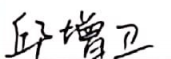 邱增卫